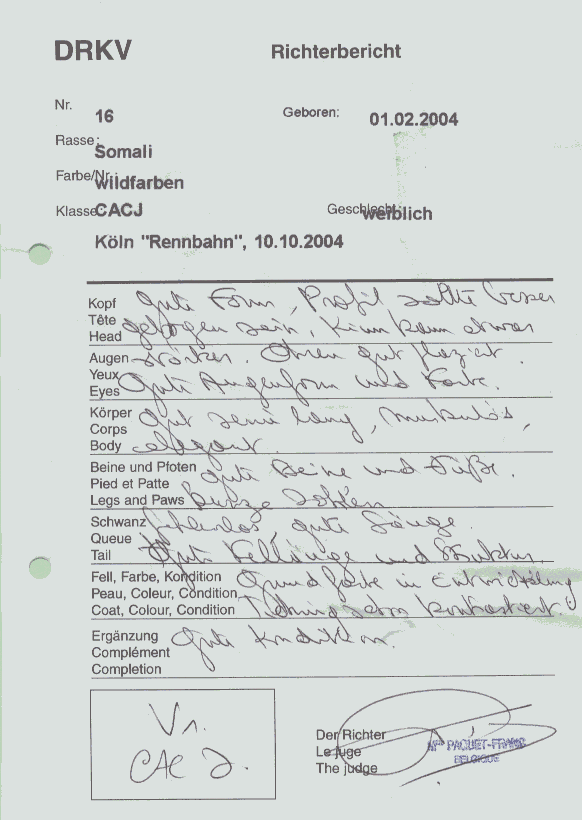 DRKV
Richterbericht
Nr. 16
Geboren: 01.02.2004
Rasse: Somali
Farbe/Nr. wildfarben
Klasse: CACJ
Geschlecht: weiblich
Köln "Rennbahn", 10.10.2004
Kopf gute Form, Profil sollte besser
Tête
Head gebogen sein, Kinn kann etwas
Augen stärker. Ohren gut plaziert.
Yeux
Eyes Gute Augenform und Farbe.
Körper Gut semi lang, muskulös,
Corps
Body elegant.
Beine und Pfoten gute Beine und Füße.
Pied et Patte
Legs and Paws Socken
Schwanz fehlerlos gute Länge.
Queue
Tail Gute Felllänge und Struktur.
Fell, Farbe, Kondition Grundfarbe in Entwicklung
Peau, Couleur, Condition
Coat, Colour, Condition kontrastiert.
Ergänzung Gute Kondition.
Complément
Completion
V1.
CAC J.
Der Richter
Le juge
The judge
PAQUET-FRANS
BELGIQUE